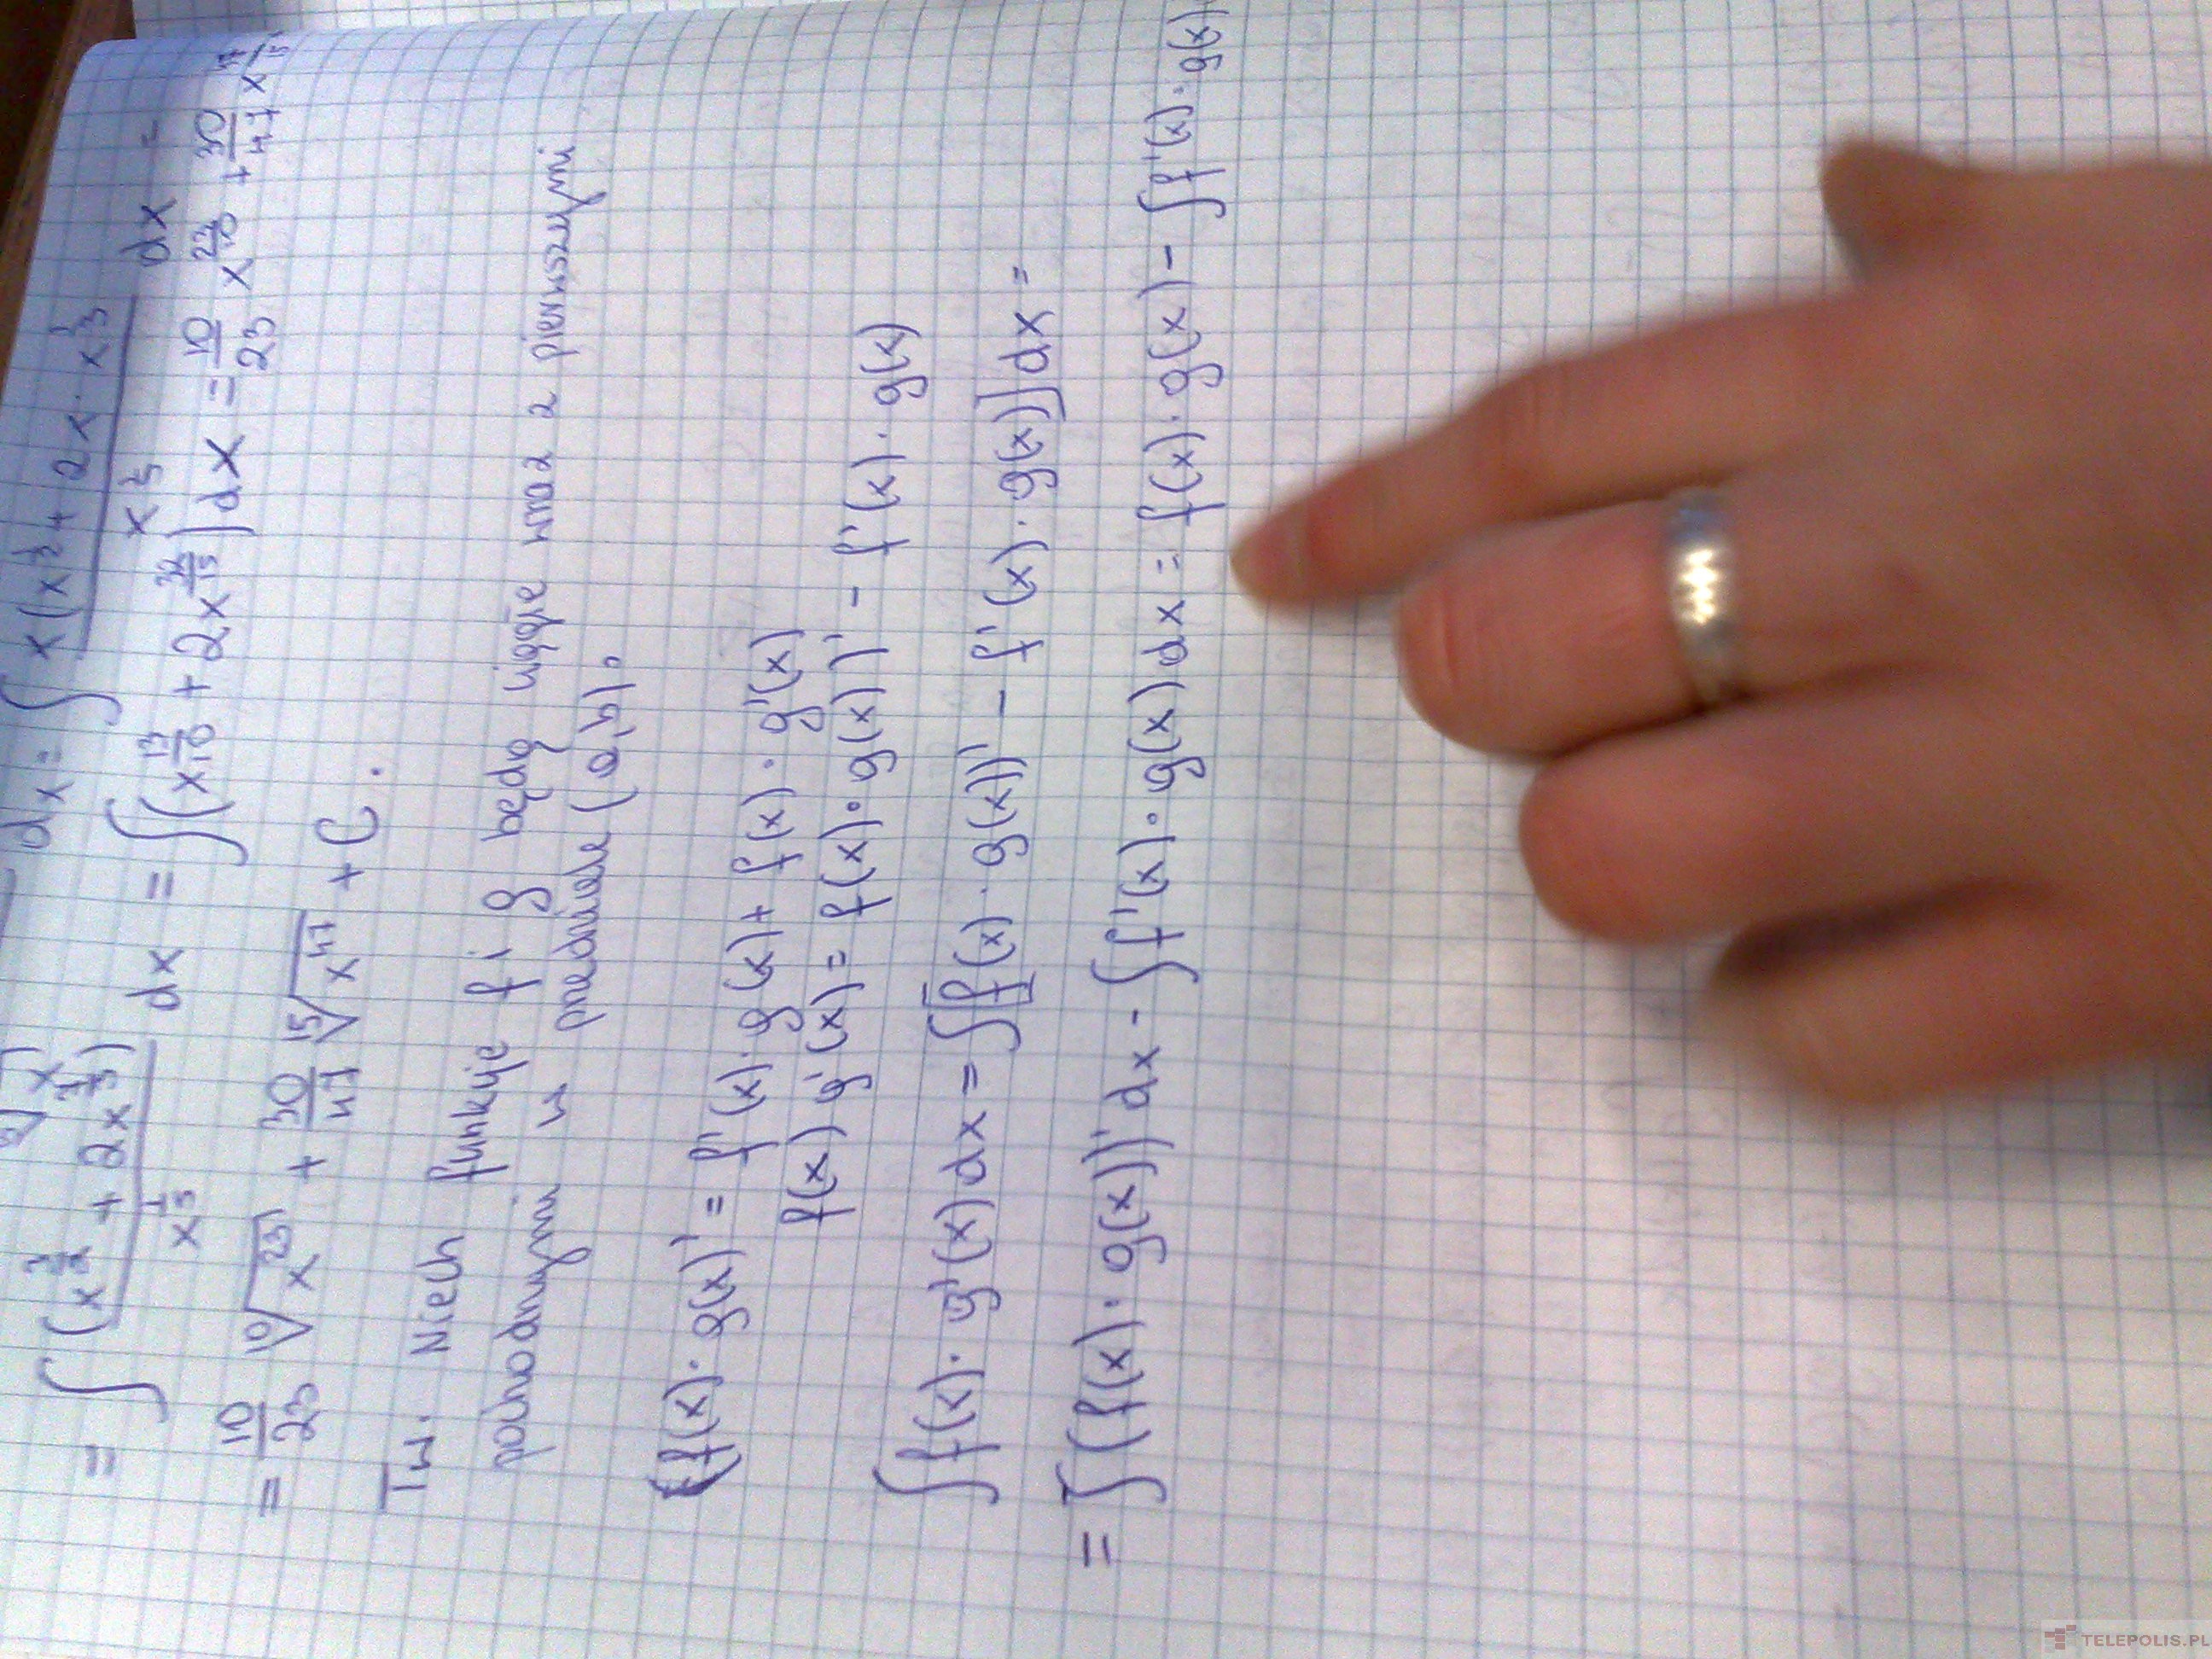 dx = ∫ x(x^{1/2} + 2x · x^{1/3}
= ∫ (x^{3/2} + 2x^{7/3}) / x^{1/5} dx = ∫(x^{13/10} + 2x^{32/15}) dx = 10/23 x^{23/10} + 30/47 x^{47/15}
= 10/23 ¹⁰√x^{23} + 30/47 ¹⁵√x^{47} + C.
Tw. Niech funkcje f i g będą ciągłe wraz z pierwszymi
pochodnymi w przedziale (a,b).
(f(x) · g(x))' = f'(x) · g(x) + f(x) · g'(x)
f(x) g'(x) = f(x) · g(x))' - f'(x) · g(x)
∫ f(x) · g'(x) dx = ∫[f(x) · g(x))' - f'(x) · g(x)] dx =
= ∫(f(x) · g(x))' dx - ∫f'(x) · g(x) dx = f(x) · g(x) - ∫f'(x) · g(x)
TELEPOLIS.PL